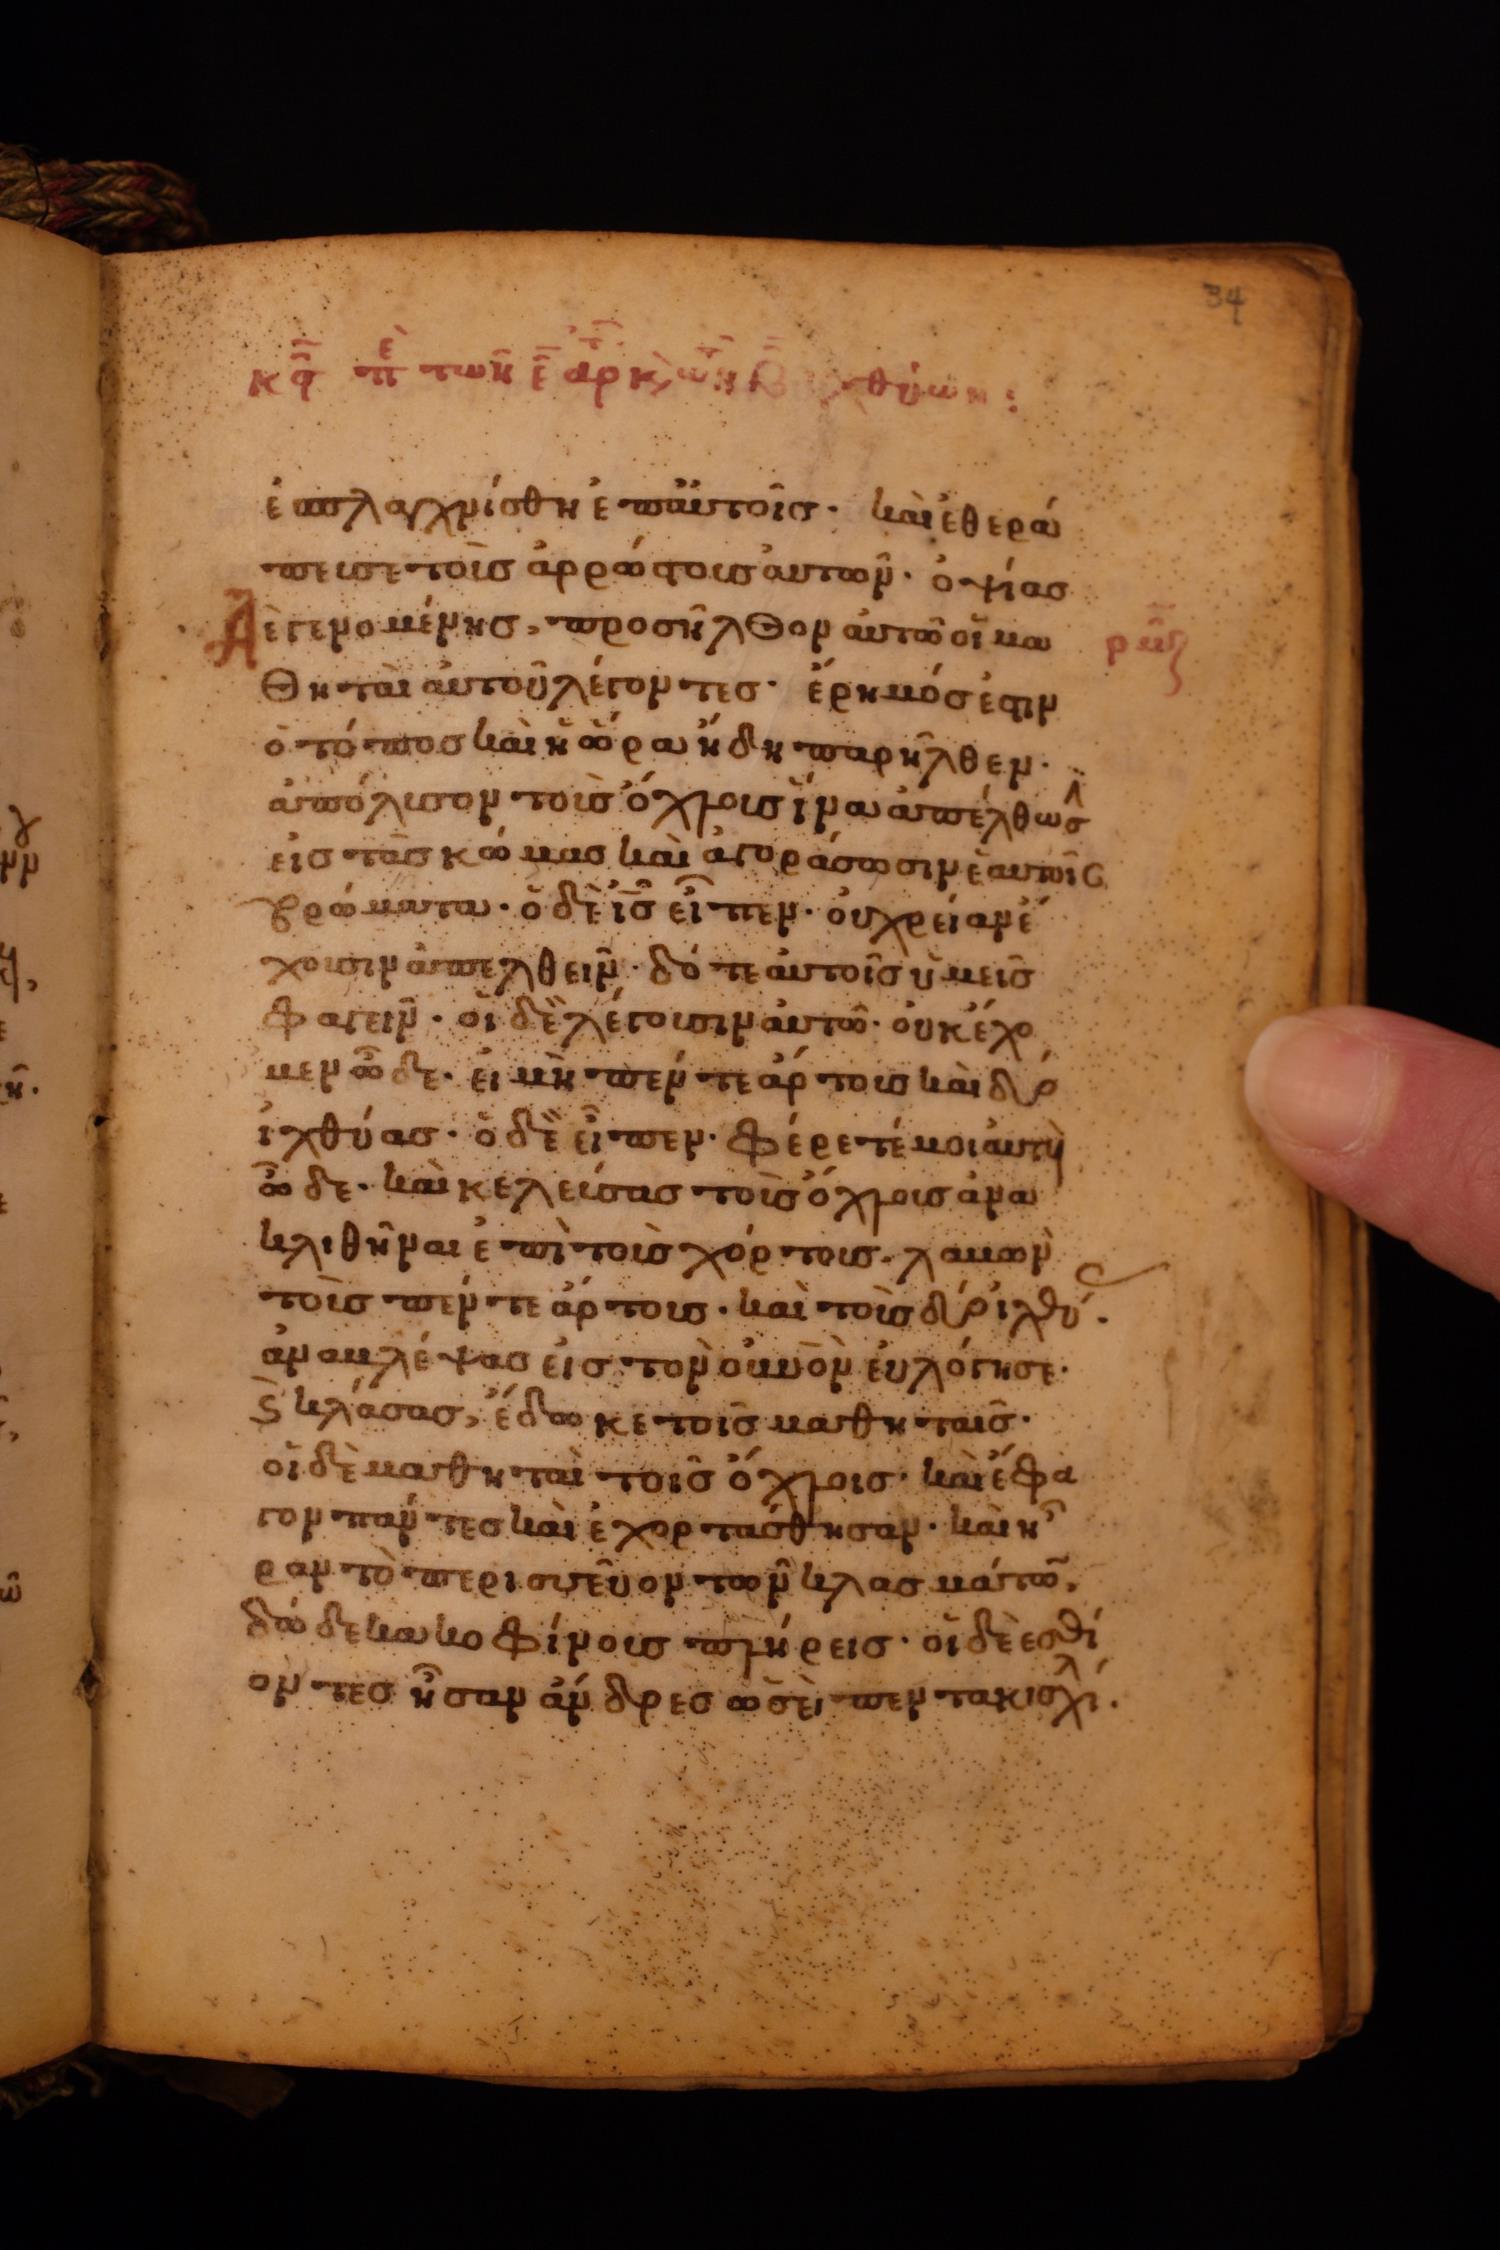 34
περὶ τῶν ε ἄρτ καὶ τῶν β ἰχθύων:
ἐσπλαγχνίσθη ἐπ αὐτοῖς· καὶ ἐθερά
πευσε τοὺς ἀρρώστους αὐτῶν· ὀψίας
δὲ γενομένης, προσῆλθον αὐτῶ οἱ μα
ρμζ
θηταὶ αὐτοῦ λέγοντες· ἔρημός ἐστιν
ὁ τόπος καὶ ἡ ὥρα ἤδη παρῆλθεν·
ἀπόλυσον τοὺς ὄχλους ἵνα ἀπελθόντες
εἰς τὰς κώμας καὶ ἀγοράσωσιν ἑαυτοῖς
βρώματα· ὁ δὲ ις εἶπεν· οὐ χρείαν ἔ
χουσιν ἀπελθεῖν· δότε αὐτοῖς ὑμεῖς
φαγεῖν· οἱ δὲ λέγουσιν αὐτῶ· οὐκ ἔχο
μεν ὧδε· εἰ μὴ πέντε ἄρτους καὶ δύο
ἰχθύας· ὁ δὲ εἶπεν· φέρετέ μοι αὐτοὺς
ὧδε· καὶ κελεύσας τοὺς ὄχλους ἀνα
κλιθῆναι ἐπὶ τοὺς χόρτους· λαβὼν
τοὺς πέντε ἄρτους· καὶ τοὺς δύο ἰχθύ·
ἀναβλέψας εἰς τὸν οὐνὸν εὐλόγησε·
καὶ κλάσας, ἔδωκε τοῖς μαθηταῖς·
οἱ δὲ μαθηταὶ τοῖς ὄχλοις· καὶ ἔφα
γον πάντες καὶ ἐχορτάσθησαν· καὶ ἦ
ραν τὸ περισσεῦον τῶν κλασμάτω,
δώδεκα κοφίνους πλήρεις· οἱ δὲ ἐσθί
οντες ἦσαν ἄνδρες ὡσεὶ πεντακισχίλ·